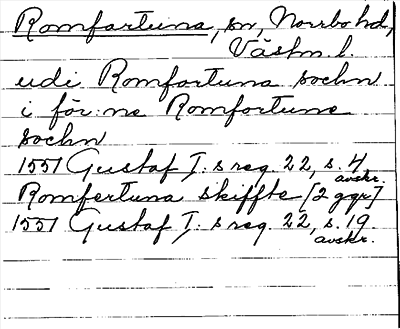 Romfartuna, sn, Norrbo hd,
Västm l.
udi Romfortuna sochn
i för:ne Romfortune
sochn
1551 Gustaf I:s reg. 22, s. 4
avskr.
Romfertuna skiffte [2 ggr]
1551 Gustaf I:s reg. 22, s. 19.
avskr.